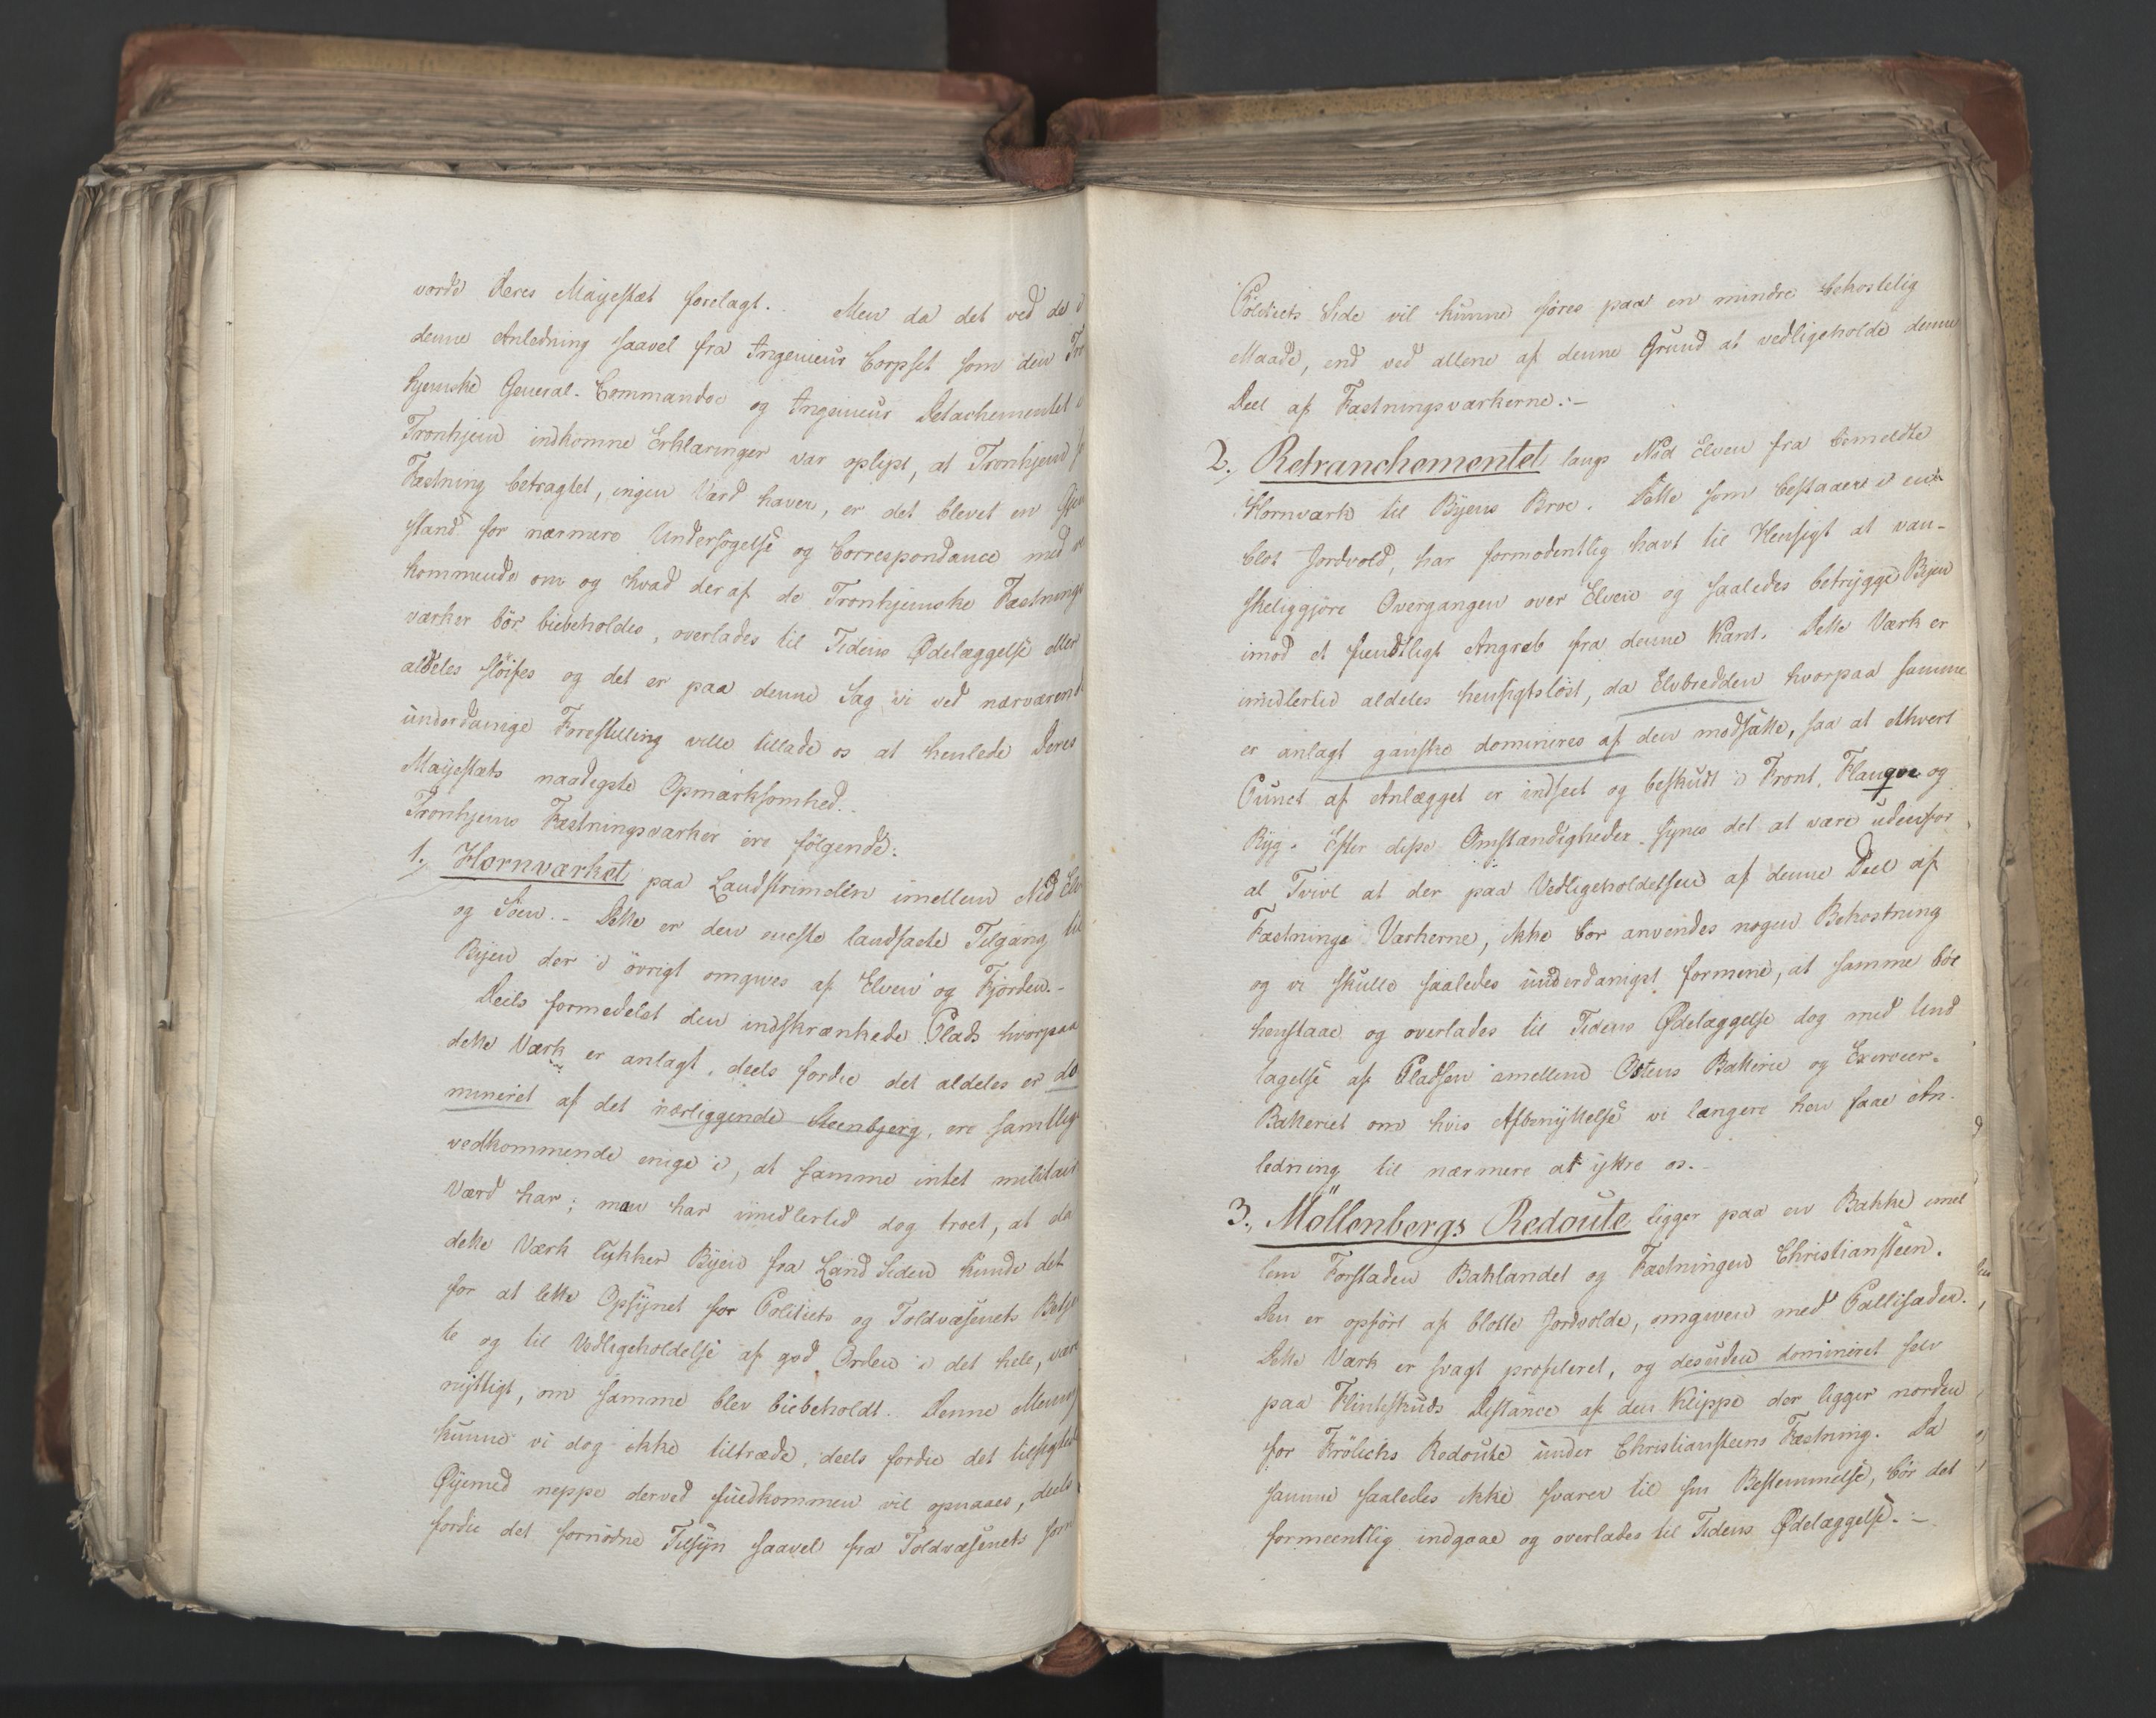 vorde Deres Majestæt forelagt. Men da det ved de i
denne Anledning saavel fra Ingenieur Corpset som den Tro
hjemske General-Commando og Ingenieur Detachementet i
Tronhjem indkomne Erklæringer var oplyst, at Tronhjem
Fæstning betragtet, ingen Værd haver, er det blevet en Gjen
stand for nærmere Undersøgelse og Correspondance med ve
kommende om og hvad der af de Tronhjemske Fæstnings
værker bör biebeholdes, overlades til Tidens Ødelæggelse eller
aldeles slöifes og det er paa denne Sag vi ved nærværend
underdanige Forestilling ville tillade os at henlede Deres
Majestæts naadigste Opmærksomhed.
Tronhjems Fæstningsværker ere fölgende:
1., Hornværket paa Landstrimelen imellem Nid Elv
og Söen. - Dette er den eneste landfaste Tilgang til
Byen der i övrigt omgives af Elven og Fjorden. -
Deels formedelst den indskrænkede Plads hvorpaa
dette Værk er anlagt, deels fordie det aldeles er do
mineret af det nærliggende Steenbjerg, ere samtlige
vedkommende enige i, at samme intet militair
Værd har; man har imidlertid dog troet, at da
dette Værk lukker Byen fra Land Siden kunde det
for at lette Opsynet for Politiets og Toldvæsenets Betje
te og til Vedligeholdelse af god Orden i det hele, være
nyttigt, om samme blev biebeholdt. Denne Mening
kunne vi dog ikke tiltræde, deels fordie det tilsigtede
Øjemed neppe derved fuldkommen vil opnaaes, deels
fordie det fornödne Tilsyn saavel fra Toldvæsenets som
Politiets Side vil kunne föres paa en mindre bekostelig
Maade, end ved allene af denne Grund at vedligeholde denne
Deel af Fæstningsværkerne. -
2., Retranchementet langs Nid Elven fra bemeldte
Hornværk til Byens Broe. Dette som bestaaer i en
blot Jordvold, har formodentlig havt til Hensigt at van-
skeliggjöre Overgangen over Elven og saaledes betrygge Byen
imod et fiendtligt Angreb fra denne Kant. Dette Værk er
imidlertid aldeles hensigtslöst, da Elvbredden hvorpaa samme
er anlagt ganske domineres af den modsatte, saa at ethvert
Punct af Anlægget er indseet og beskudt i Front, Flanqve og
Ryg. Efter disse Omstændigheder synes det at være udenfor
al Tvivl at der paa Vedligeholdelsen af denne Deel af
Fæstnings Værkerne, ikke bör anvendes nogen Bekostning
og vi skulle saaledes underdanigst formene, at samme bör
henstaae og overlades til Tidens Ødelæggelse dog med Und
tagelse af Pladsen imellem Ostens Batterie og Exerceer-
Batteriet om hvis Afbenyttelse vi længere hen faae An-
ledning til nærmere at ytre os. -
3., Möllenbergs Redoute ligger paa en Bakke imel
lem Forstaden Baklandet og Fæstningen Christiansteen.
Den er opfört af blotte Jordvolde, omgiven med Pallisader.
Dette Værk er svagt profileret, og desuden domineret selv
paa Flinteskuds Distance af den Klippe der ligger norden
for Frölichs Redoute under Christiansteens Fæstning. Da
samme saaledes ikke svarer til sin Bestemmelse, bör det
formeentlig indgaae og overlades til Tidens Ødelæggelse. -